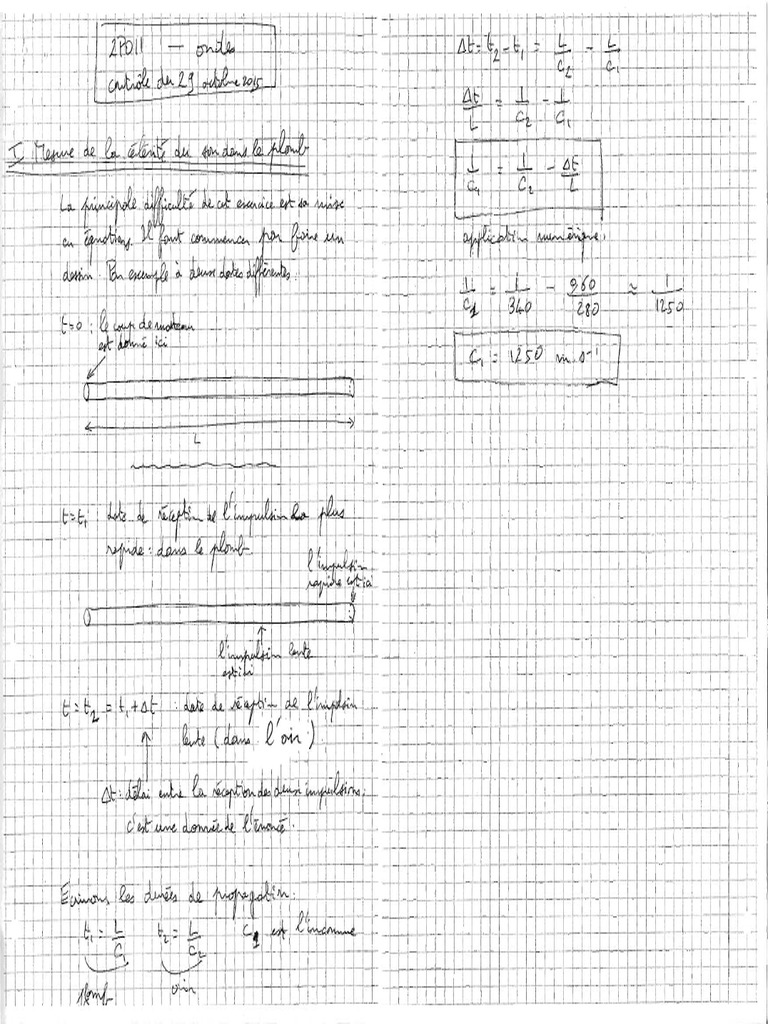 2PO11 — ondes
contrôle du 29 octobre 2015
I Mesure de la célérité du son dans le plomb
La principale difficulté de cet exercice est sa mise
en équations. Il faut commencer par faire un
dessin. Par exemple à deux dates différentes.
t=0 : le coup de marteau
est donné ici
L
t=t₁ : date de réception de l'impulsion la plus
rapide : dans le plomb.
l'impulsion
rapide est ici
l'impulsion lente
est ici
t = t₂ = t₁ + Δt : date de réception de l'impulsion
lente (dans l'air).
Δt : délai entre la réception des deux impulsions.
c'est une donnée de l'énoncé.
Ecrivons les durées de propagation.
t₁ = L/C₁ t₂ = L/C₂ C₁ est l'inconnue
plomb air
Δt = t₂ - t₁ = L/C₂ - L/C₁
Δt/L = 1/C₂ - 1/C₁
1/C₁ = 1/C₂ - Δt/L
application numérique.
1/C₁ = 1/340 - 960/280 ≈ 1/1250
C₁ = 1250 m.s⁻¹